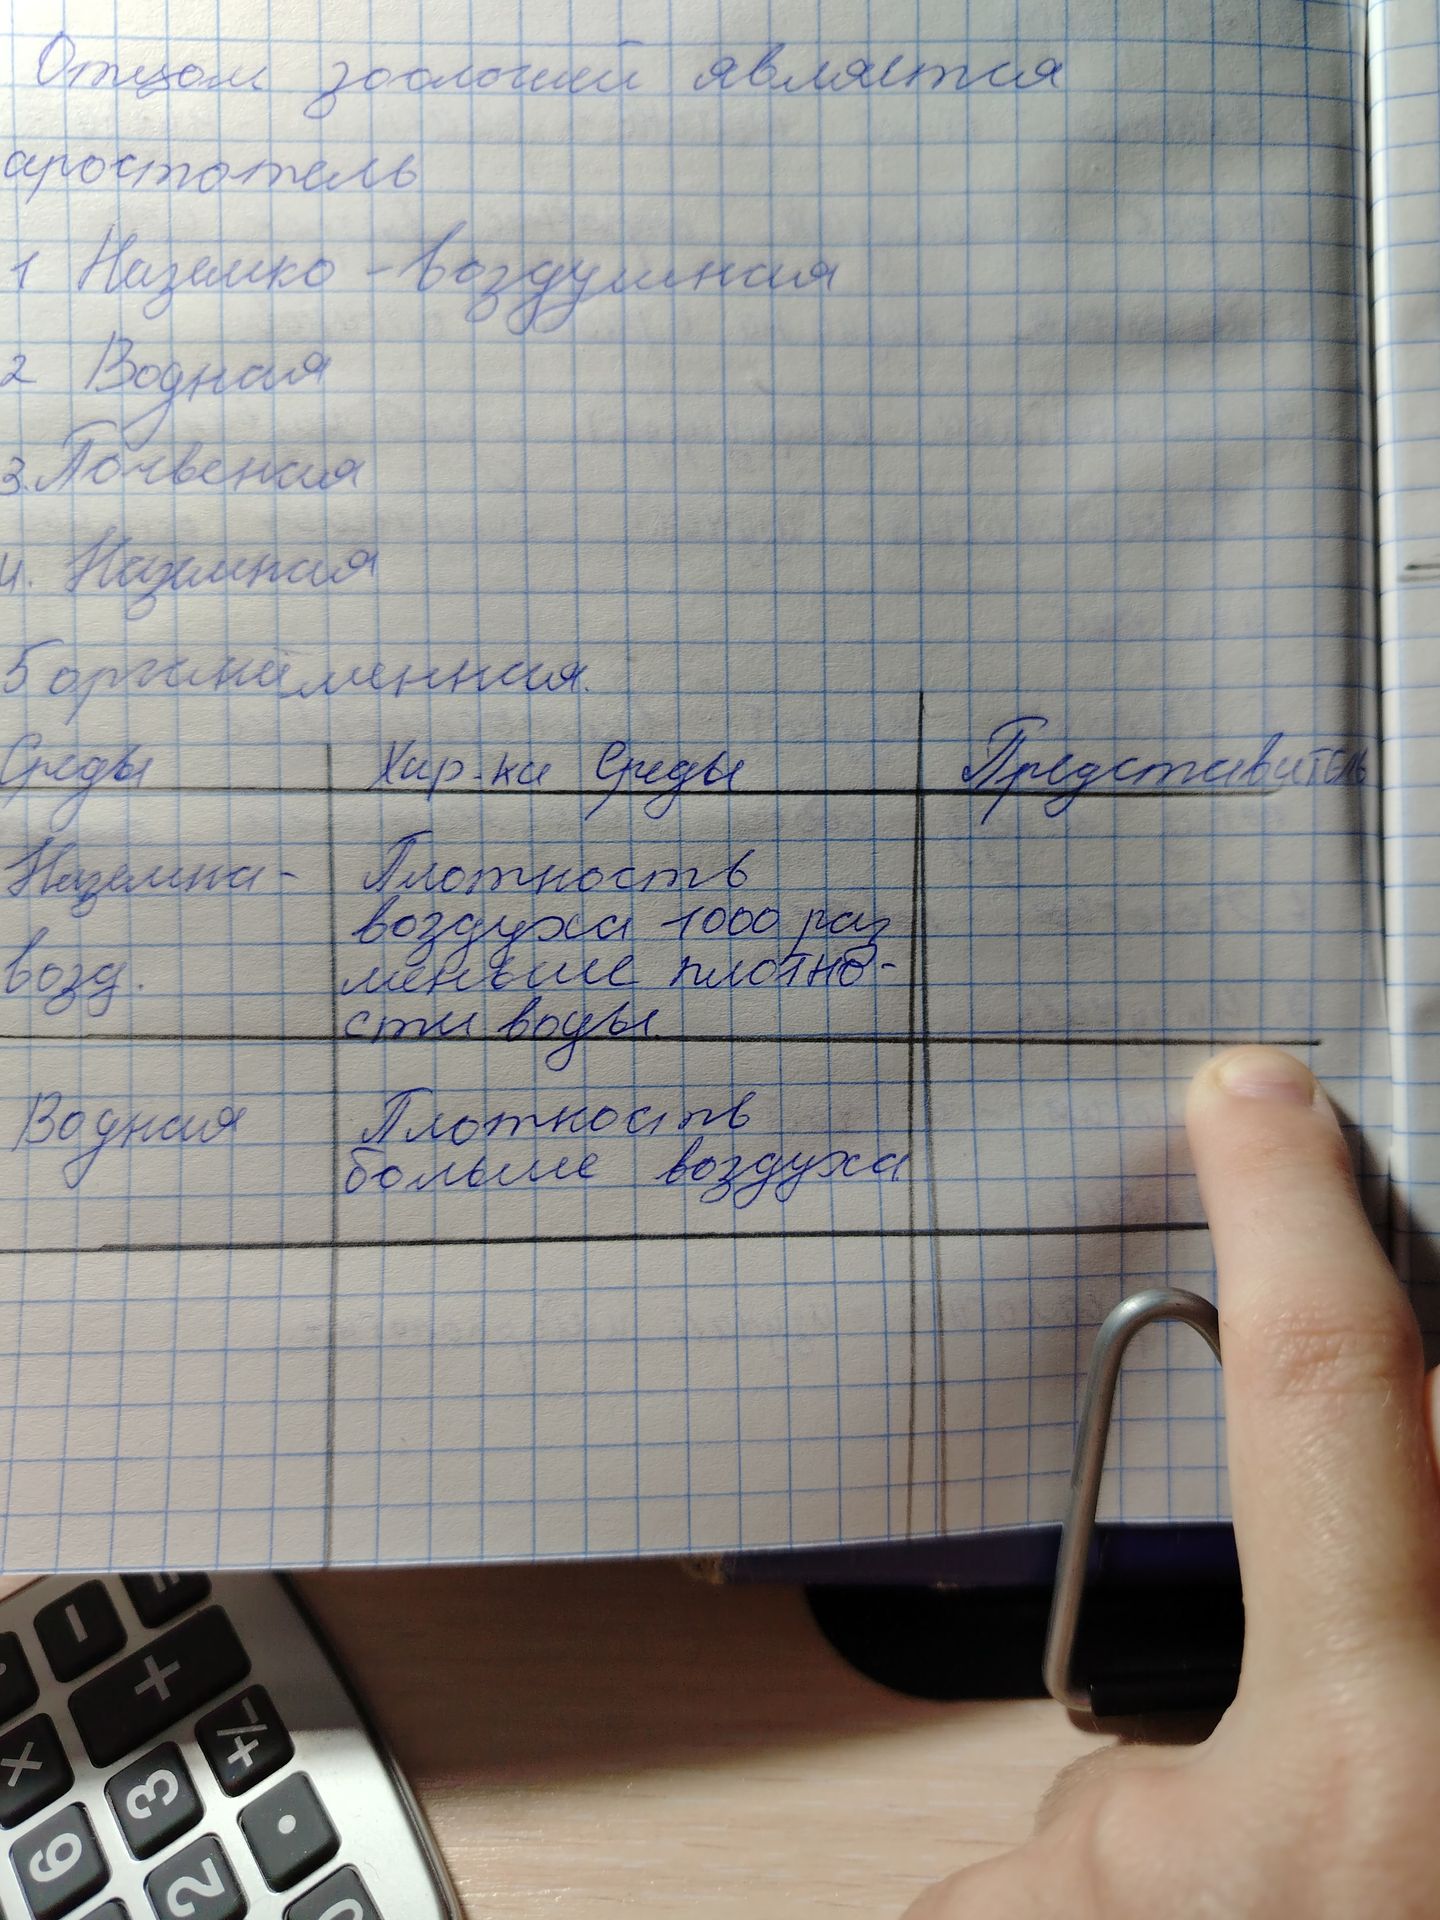 Отцом зоологией является
аростотель
1 Наземно-воздушная
2 Водная
3. Почвеная
4. Наземная
5 организменная.
Среды Хар-ка Среды Представитель
Наземна- Плотность
воздуха 1000 раз
возд. меньше плотно-
сти воды.
Водная Плотность
больше воздуха
+
+/-
×
3
·
6
2